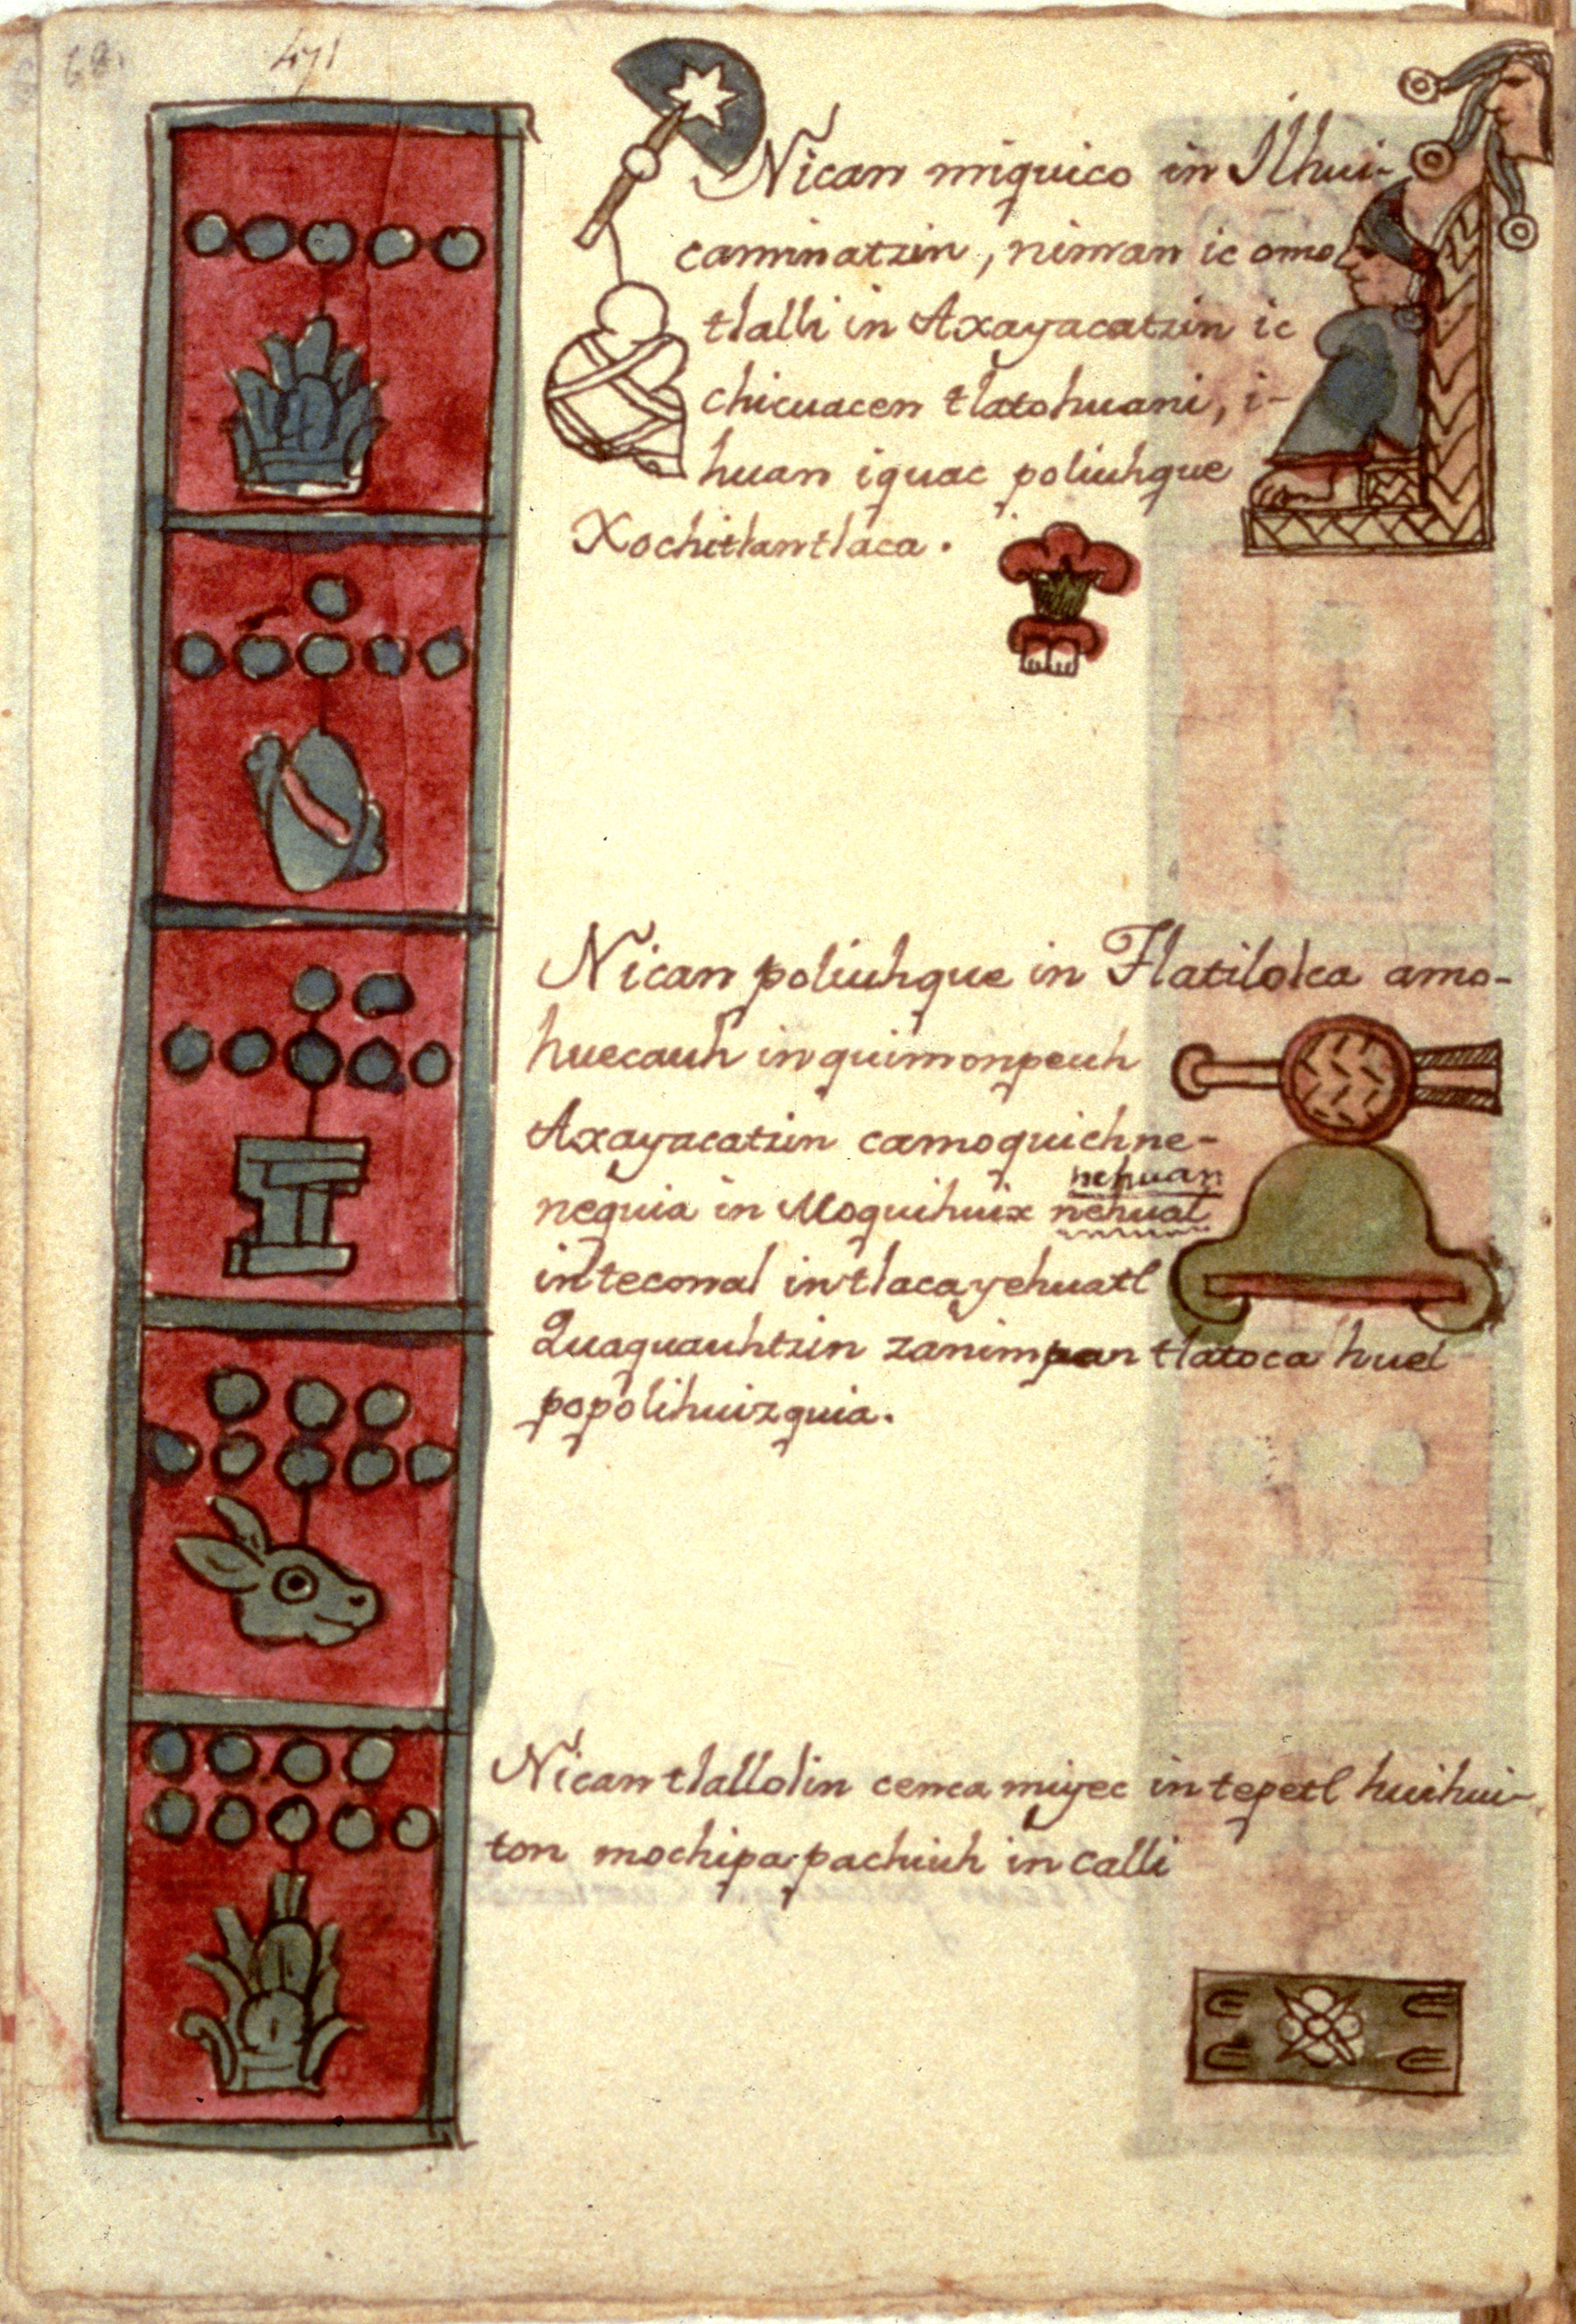 68.
471
Nican miquico in Ilhui-
caminatzin, niman ic omo
tlalli in Axayacatzin ic
chicuacen tlatohuani, i-
huan iquac poliuhque
Xochitlantlaca.
Nican poliuhque in Tlatilolca amo-
huecauh in quimonpeuh
Axayacatzin camoquichne-
nehuan
nequia in Moquihuix nehual
in teconal in tlacayehuatl
Quaquauhtzin zanim tlatoca huel
popolihuizquia.
Nican tlallolin cenca miyec in tepetl huihui-
ton mochipa pachiuh in calli